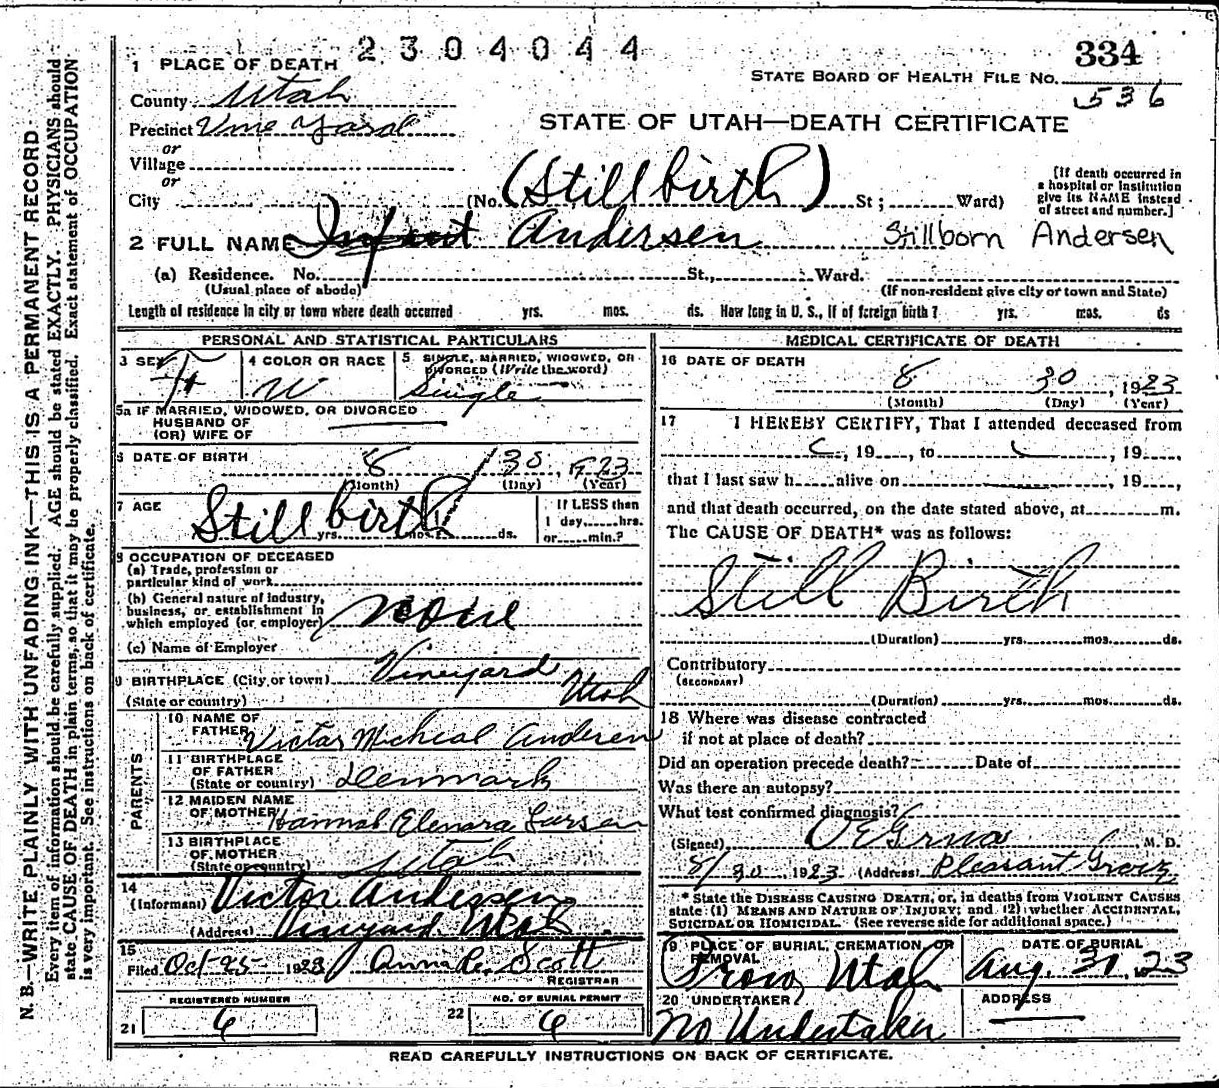 2304044
334
1 PLACE OF DEATH
STATE BOARD OF HEALTH FILE NO.
536
County Utah
Precinct Vine Yard
STATE OF UTAH—DEATH CERTIFICATE
or
Village
or
City (No. (Stillbirth) St; Ward)
[If death occurred in
a hospital or institution
give its NAME instead
of street and number.]
2 FULL NAME Infant Andersen Stillborn Andersen
(a) Residence. No. St., Ward.
(Usual place of abode) (If non-resident give city or town and State)
Length of residence in city or town where death occurred yrs. mos. ds. How long in U. S., if of foreign birth? yrs. mos. ds
PERSONAL AND STATISTICAL PARTICULARS
3 SEX
4 COLOR OR RACE W
5 SINGLE, MARRIED, WIDOWED, OR
DIVORCED (Write the word)
Single
5a IF MARRIED, WIDOWED, OR DIVORCED
HUSBAND OF
(OR) WIFE OF
6 DATE OF BIRTH 8 / 30, 1923
(Month) (Day) (Year)
7 AGE Stillbirth
yrs. mos. ds.
If LESS than
1 day, hrs.
or min.?
8 OCCUPATION OF DECEASED
(a) Trade, profession or
particular kind of work
(b) General nature of industry,
business, or establishment in
which employed (or employer) none
(c) Name of Employer
9 BIRTHPLACE (City or town) Vineyard
(State or country) Utah
PARENTS
10 NAME OF
FATHER Victor Micheal Andersen
11 BIRTHPLACE
OF FATHER
(State or country) Denmark
12 MAIDEN NAME
OF MOTHER Hannah Elenora Larsen
13 BIRTHPLACE
OF MOTHER
(State or country) Utah
14
(Informant) Victor Andersen
(Address) Vineyard Utah
15
Filed Oct 25 1923 Anna Scott
REGISTRAR
REGISTERED NUMBER
21 6
NO. OF BURIAL PERMIT
22 6
MEDICAL CERTIFICATE OF DEATH
16 DATE OF DEATH
8 30, 1923
(Month) (Day) (Year)
17 I HEREBY CERTIFY, That I attended deceased from
, 19, to , 19,
that I last saw h alive on , 19,
and that death occurred, on the date stated above, at m.
The CAUSE OF DEATH* was as follows:
Still Birth
(Duration) yrs. mos. ds.
Contributory
(SECONDARY)
(Duration) yrs. mos. ds.
18 Where was disease contracted
if not at place of death?
Did an operation precede death? Date of
Was there an autopsy?
What test confirmed diagnosis?
(Signed) M. D.
8/30 1923 (Address) Pleasant Grove
* State the DISEASE CAUSING DEATH, or, in deaths from VIOLENT CAUSES
state (1) MEANS AND NATURE OF INJURY; and (2) whether ACCIDENTAL,
SUICIDAL OR HOMICIDAL. (See reverse side for additional space.)
19 PLACE OF BURIAL, CREMATION, OR
REMOVAL
Provo, Utah
DATE OF BURIAL
Aug. 31, 23
20 UNDERTAKER
No Undertaker
ADDRESS
READ CAREFULLY INSTRUCTIONS ON BACK OF CERTIFICATE.
N. B.—WRITE PLAINLY WITH UNFADING INK—THIS IS A PERMANENT RECORD.
Every item of information should be carefully supplied. AGE should be stated EXACTLY. PHYSICIANS should
state CAUSE OF DEATH in plain terms, so that it may be properly classified. Exact statement of OCCUPATION
is very important. See instructions on back of certificate.